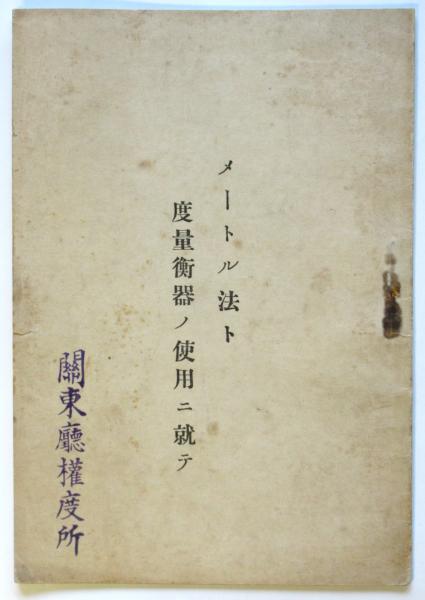 メートル法ト
度量衡器ノ使用ニ就テ
關東廳權度所